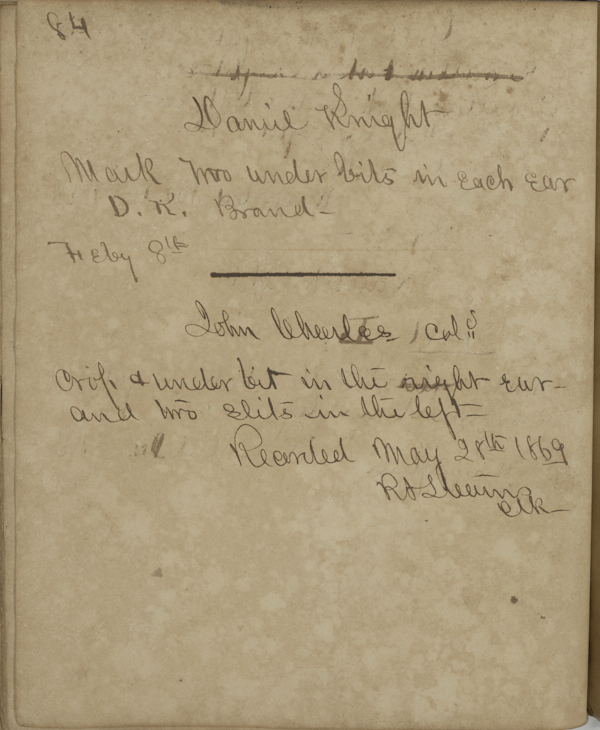 84
Daniel Knight
Mark Two under bits in each ear
D. K. Brand -
Feby 8th
John Charles Col'd
Crop & under bit in the right ear -
and two slits in the left -
Recorded May 28th 1869
Clk -